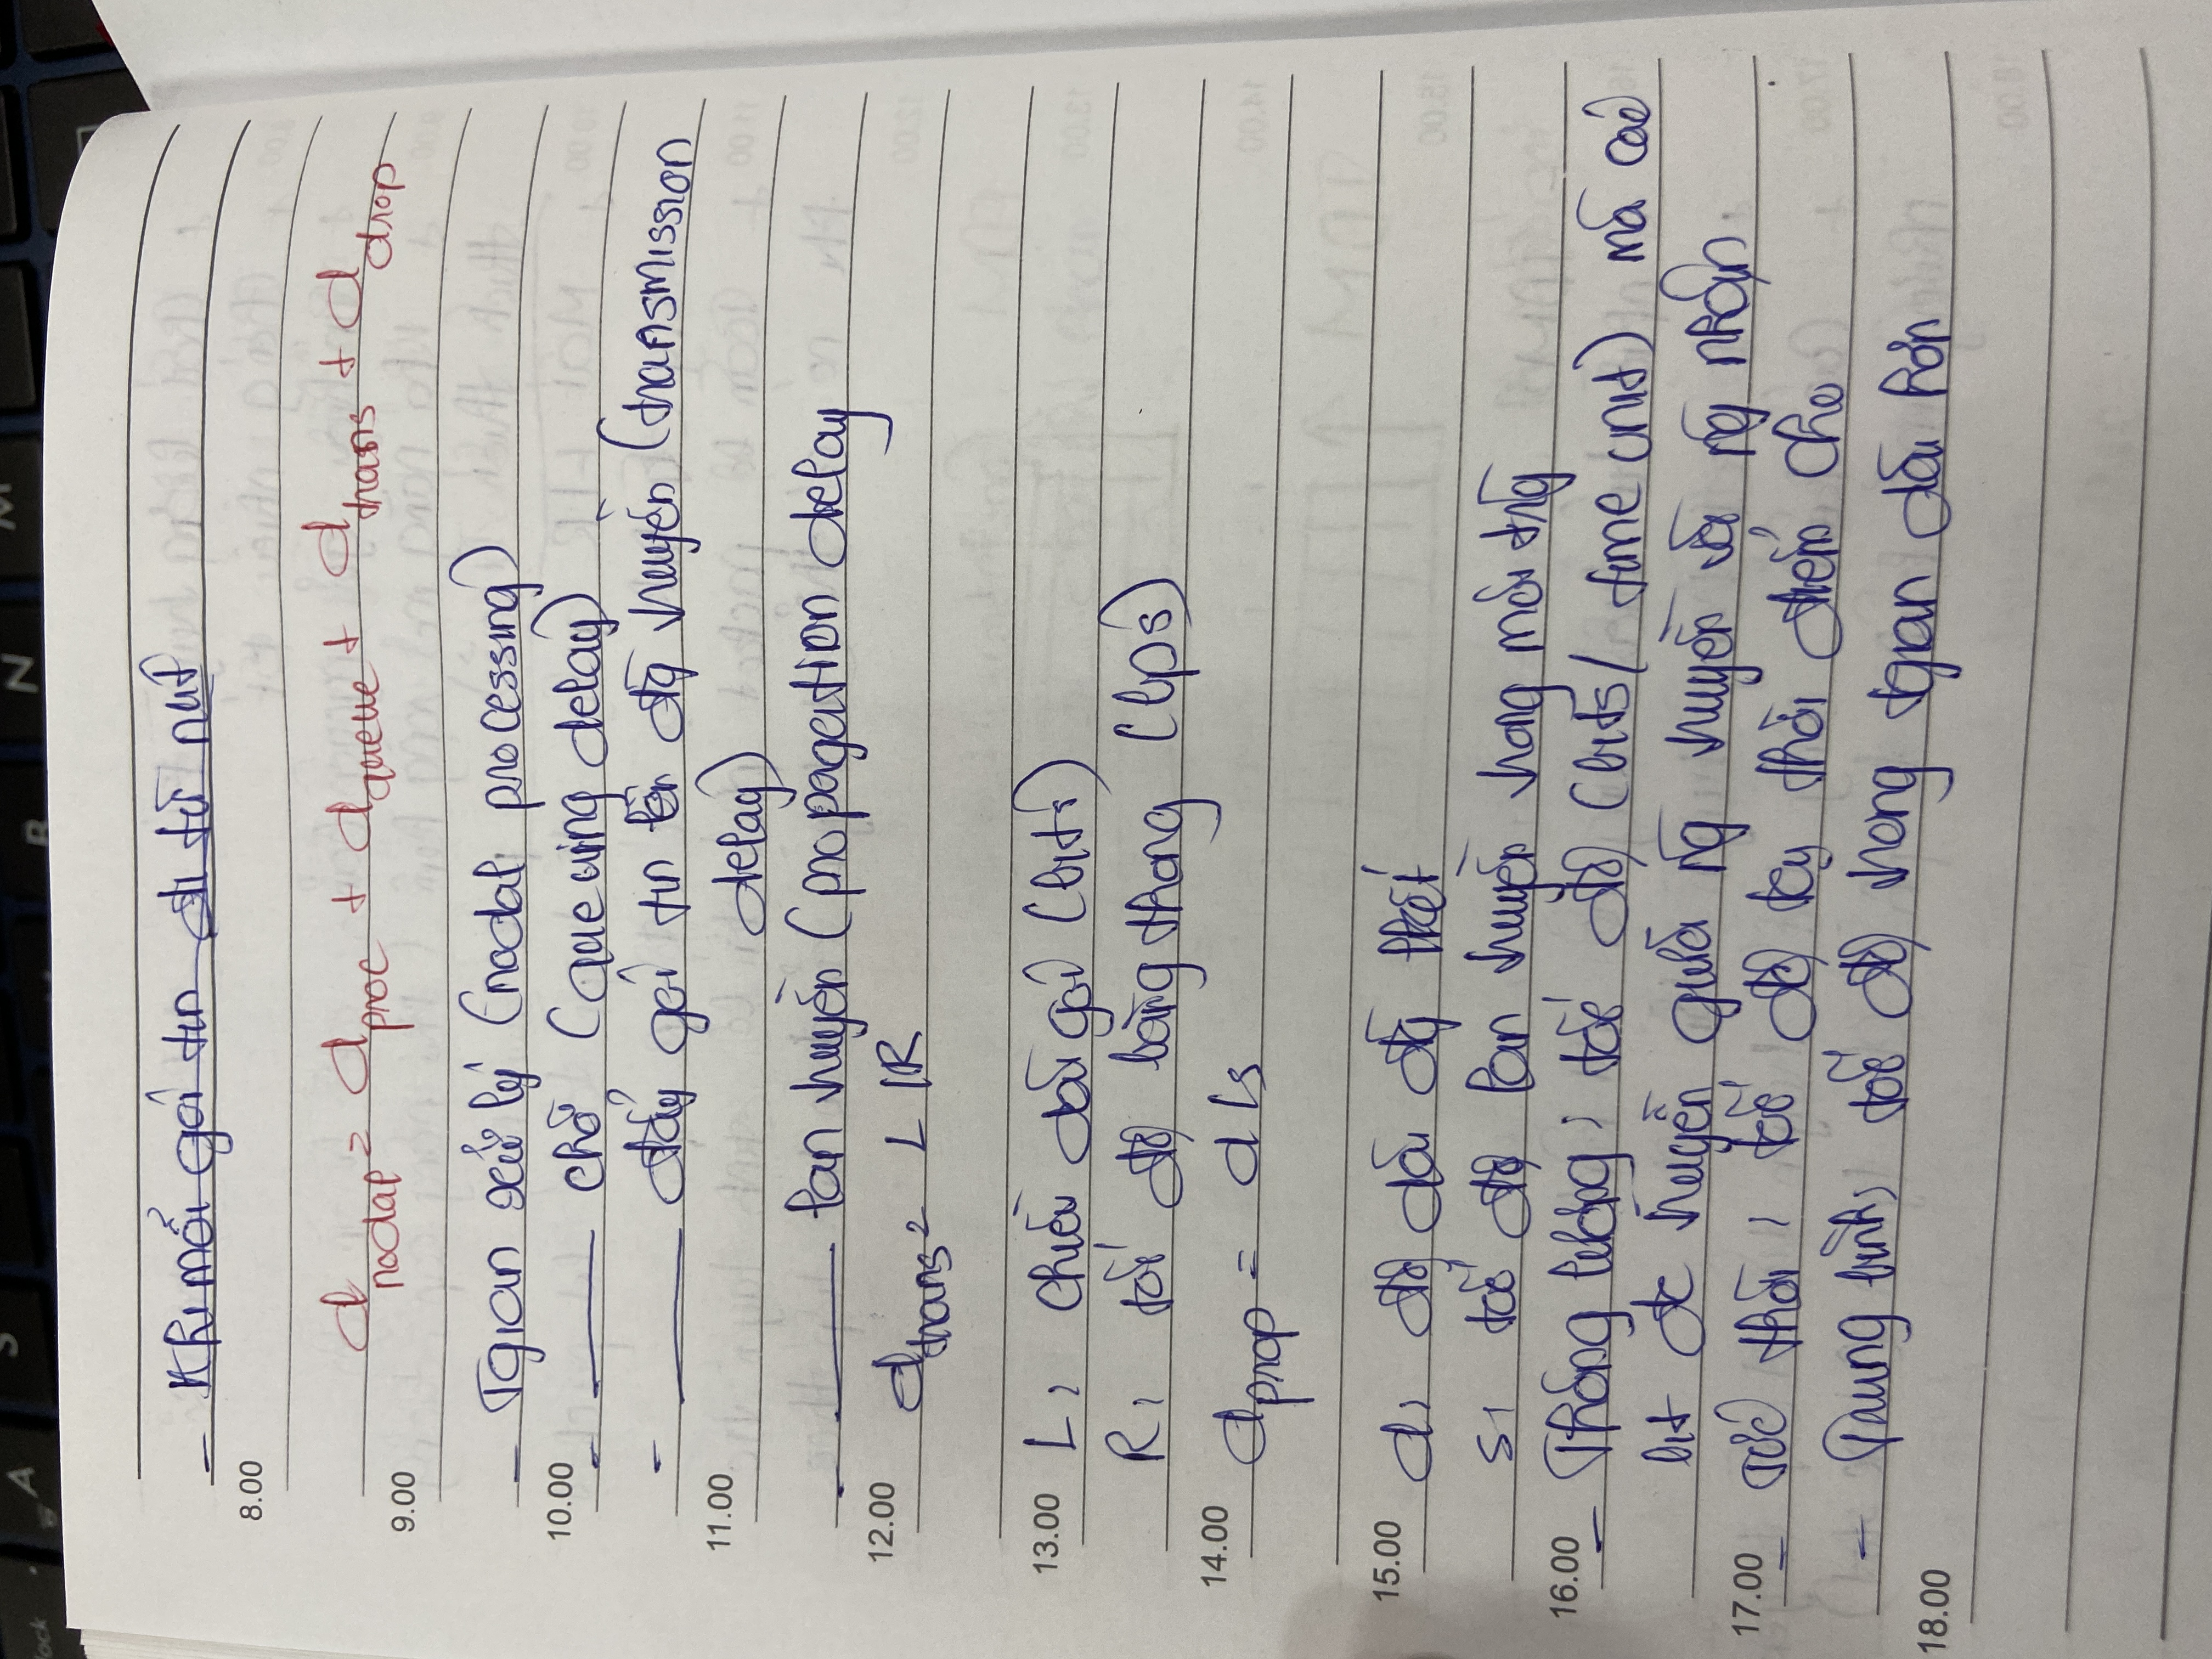 - Khi mỗi gói tin đi từ nút
8.00
d nodal = d proc + d queue + d trans + d drop
9.00
- Tgian xử lý (nodal processing)
10.00
- ——— chờ (queuing delay)
- ——— đẩy gói tin lên đg truyền (transmission
11.00
delay)
- ——— lan truyền (propagation delay
12.00
d trans = L/R
13.00 L: chiều dài gói (bits)
R: tốc độ băng thông (bps)
14.00
d prop = d/s
15.00 d: độ dài đg
s: tốc độ lan truyền trong môi trg
16.00
- Thông lượng: tốc độ (bits/ time unit) mà các
bit đc truyền giữa ng truyền và ng nhận
17.00
- Tức thời: tốc độ tại thời điểm cho
- Trung bình: tốc độ trong tgian dài hơn
18.00